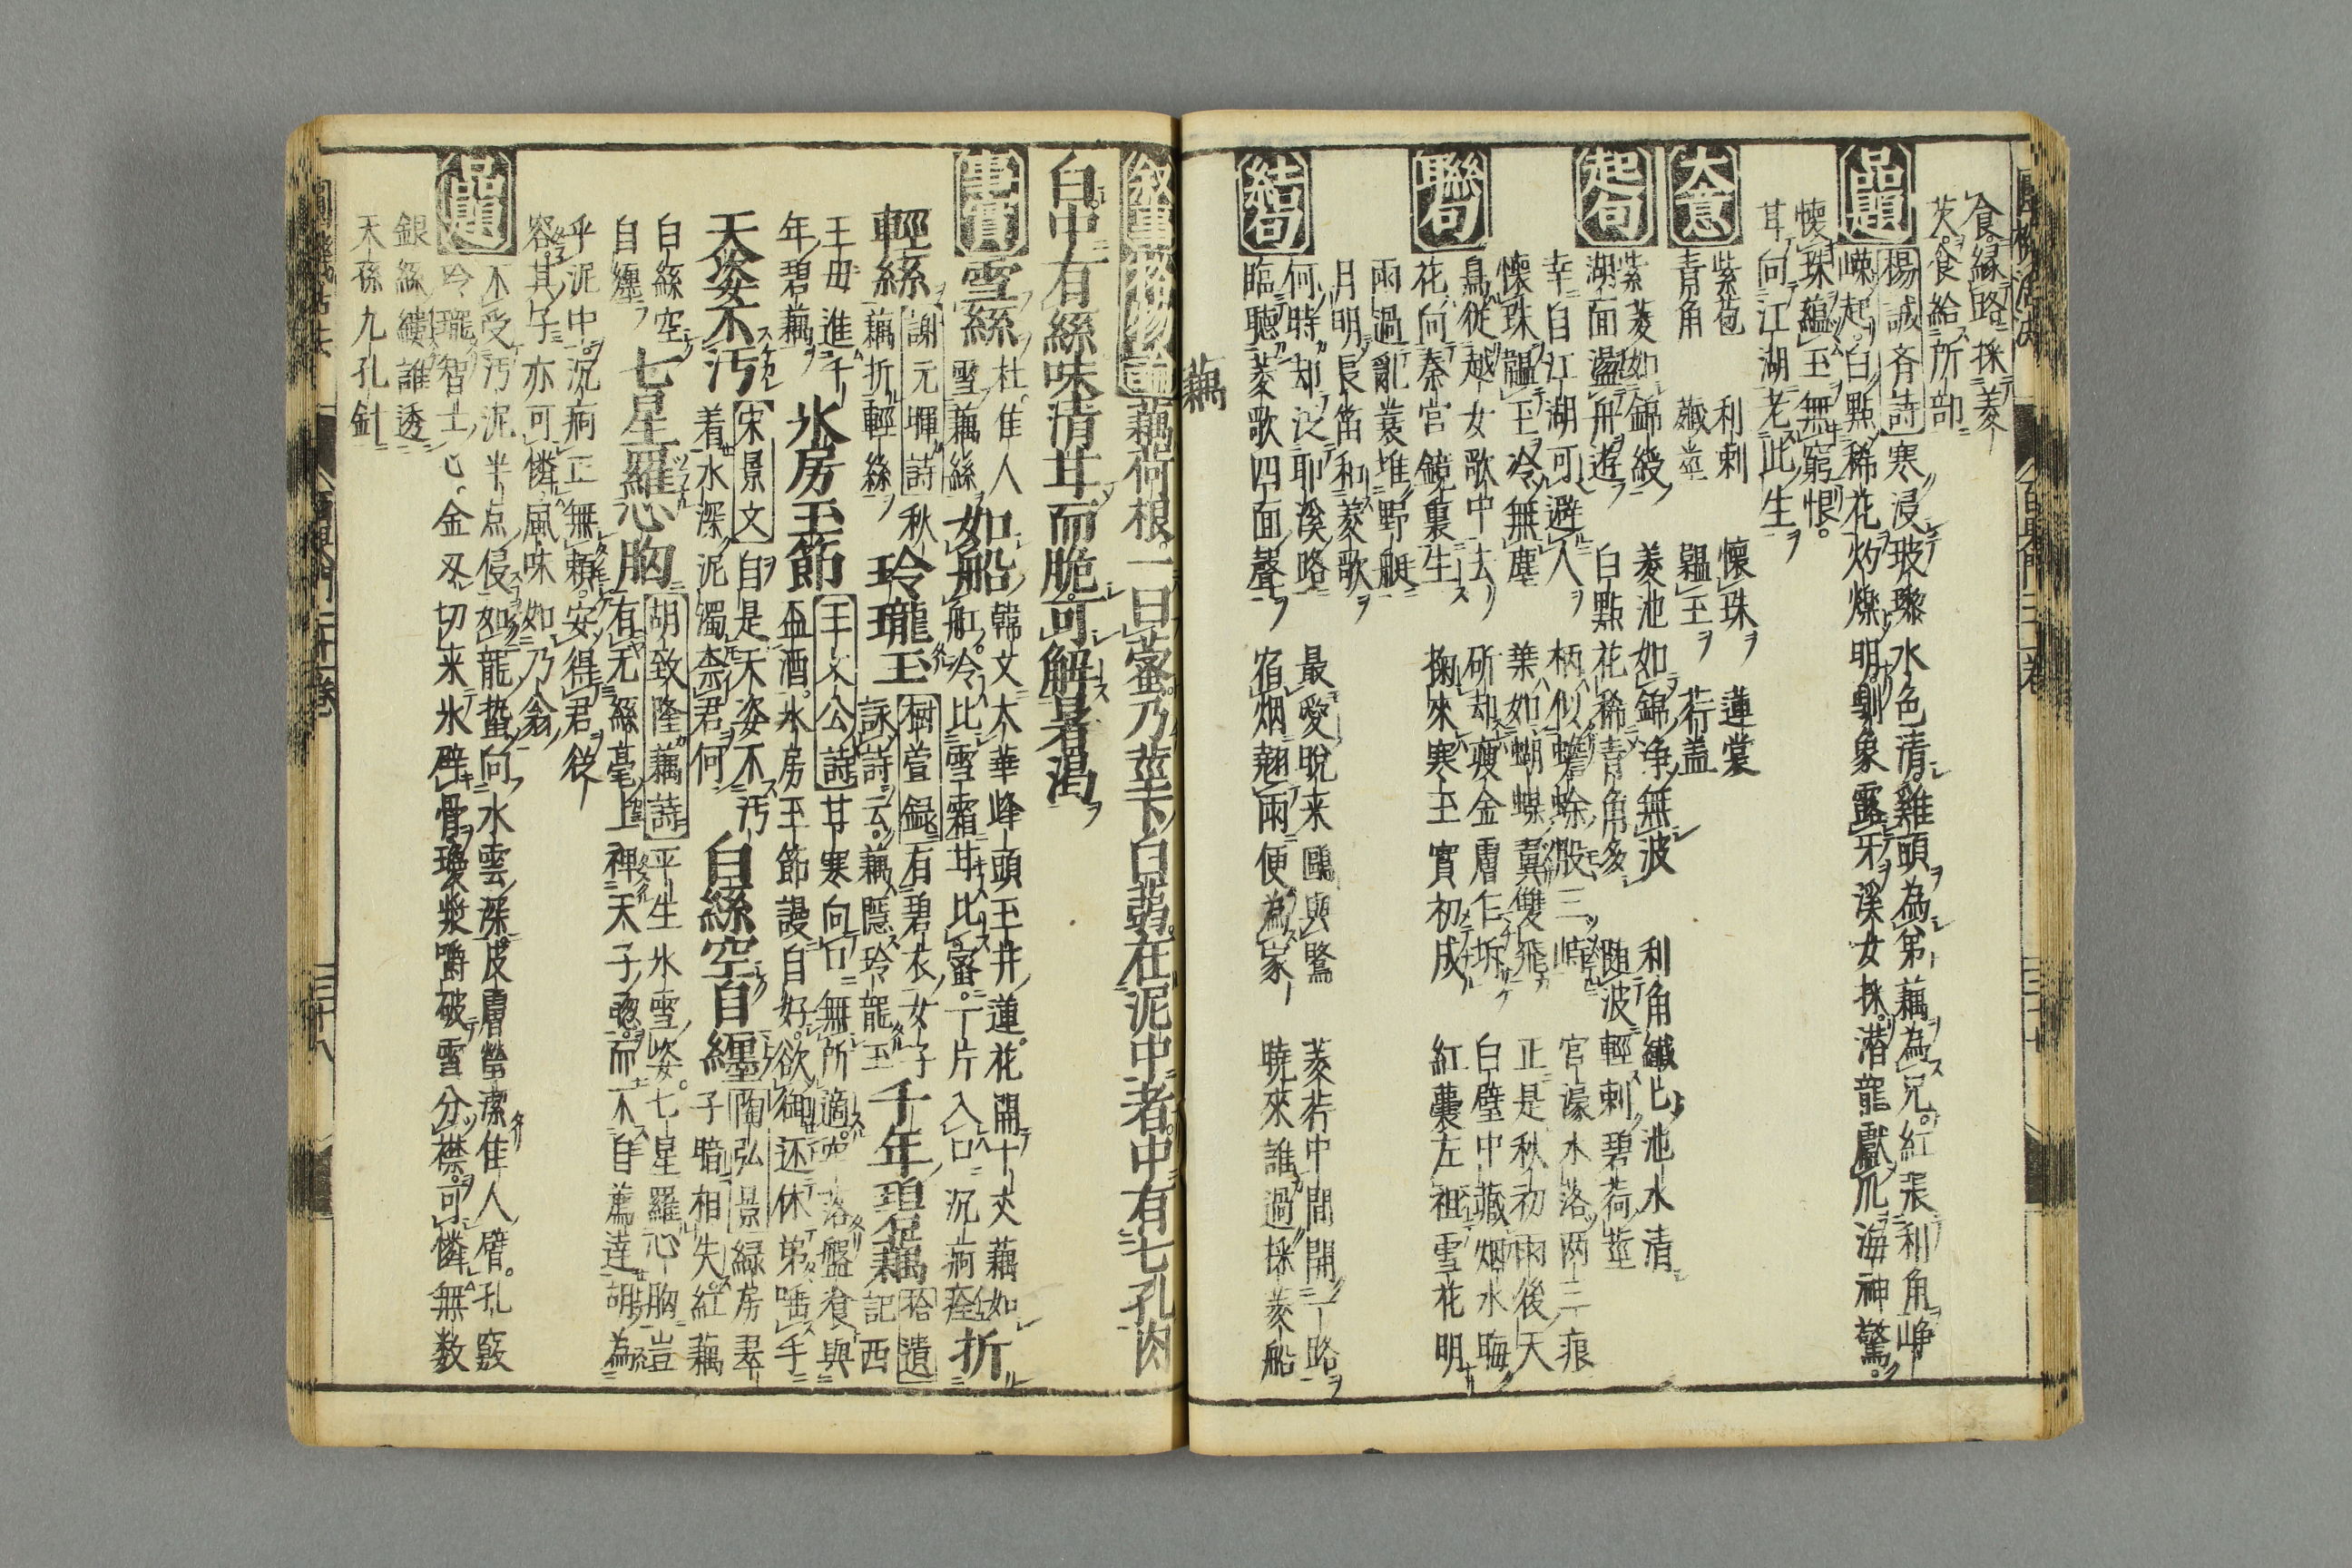 食緑路採菱
芡食給所部
品題 楊誠齋詩 寒浸玻瓈水色清雞頭為弟藕為兄紅裳利角崢
嶸起白點稀花灼爍明馴象露牙溪女採潜龍獻爪海神驚
懷珠蘊玉無窮恨
甘向江湖老此生
大意 紫苞 利刺 懷珠 蓮裳
青角 蘵莖 韞玉 荇盖
起句 紫菱如錦綬 菱池如錦浄無波 利角纎匕池水清
湖面盪舟遊 白點花稀青角多 随波輕刺碧荷莖
幸自江湖可避人 柄似蟾蜍股三 官濠水落两三痕
懷珠韞玉冷無塵 葉如蝴蝶翼雙飛 正是秋初雨後天
聯句 鳥從越女歌中去 斫却瘦金膚乍坼 白璧中藏烟水晦
花向秦宮鏡裏生 掬來寒玉實初成 紅囊左袒雪花明
雨過亂蓑堆野艇
月明長笛和菱歌
結句 何時却泛耶溪路 最愛晩来鷗與鷺 菱荇中間開一路
臨聴菱歌四面聲 宿烟翹雨便為家 暁來誰過採菱船
藕
叙事 格物論 藕荷根一曰蔤乃莖下白蒻在泥中者中有七孔肉
白中有絲味清甘而脆可解暑渇
事實 雪絲 杜佳人雪藕絲 如船 韓文太華峰頭玉井蓮花開十丈藕如
舡冷比雪霜甘比蜜一片入口沉痾痊 折
輕絲 謝元暉詩秋藕折輕絲 玲瓏玉 樹萱録有碧衣女子
詠詩云藕隠玲瓏玉 千年碧藕 拾遺記西
王母進千年碧藕 氷房玉節 王文公詩甘寒向口無所適空落盤飡與
盃酒氷房玉節謾自好欲御还休苐唾手
天姿不汚 宋景文自是天姿不汚
着水深泥濁柰君何 白絲空自纏 陶弘景緑房翠
子暗相失紅藕
白絲空自纏 七星羅心胸 胡致隆藕詩平生氷雪姿七星羅心胸豈
有无絲毫上裨天子聦而不自薦達胡為
乎泥中沉痾正無頼安得君從
容其子亦可憐風味如乃翁
品題 不受汚泥半点侵如龍蟄向水雲深皮膚瑩潔佳人臂孔竅
玲瓏智士心金刃切来氷壁骨瓊漿嚼破雪分襟可憐無数
銀絲縷誰透
天孫九孔針